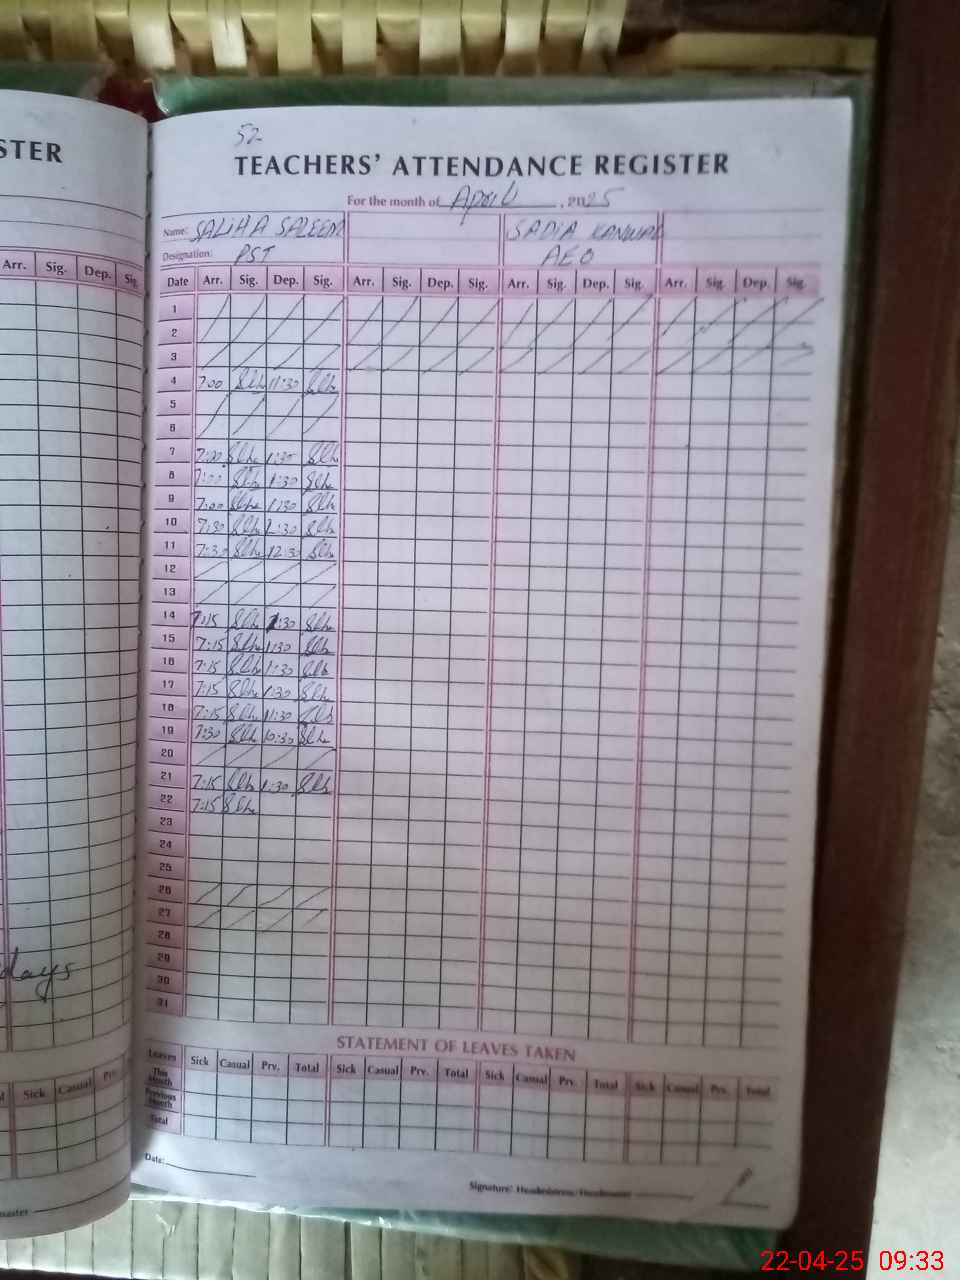 STER
52
TEACHERS' ATTENDANCE REGISTER
For the month of April, 2025
Name: SALIHA SALEEM SADIA KANWAL
Designation: PST AEO
Arr. Sig. Dep. Sig.
Date Arr. Sig. Dep. Sig. Arr. Sig. Dep. Sig. Arr. Sig. Dep. Sig. Arr. Sig. Dep. Sig.
1
2
3
4 7:00 11:30
5
6
7 7:00 1:30
8 7:00 1:30
9 7:00 1:30
10 7:30 12:30
11 7:30 12:30
12
13
14 7:15 1:30
15 7:15 1:30
16 7:15 1:30
17 7:15 1:30
18 7:15 11:30
19 7:30 10:30
20
21 7:15 1:30
22 7:15
23
24
25
26
27
28
29
30
31
days
STATEMENT OF LEAVES TAKEN
Leaves Sick Casual Prv. Total Sick Casual Prv. Total Sick Casual Prv. Total Sick Casual Prv. Total
This Month
Previous Month
Total
Sick Casual Prv.
Date:
Signature: Headmistress/Headmaster
master
22-04-25 09:33